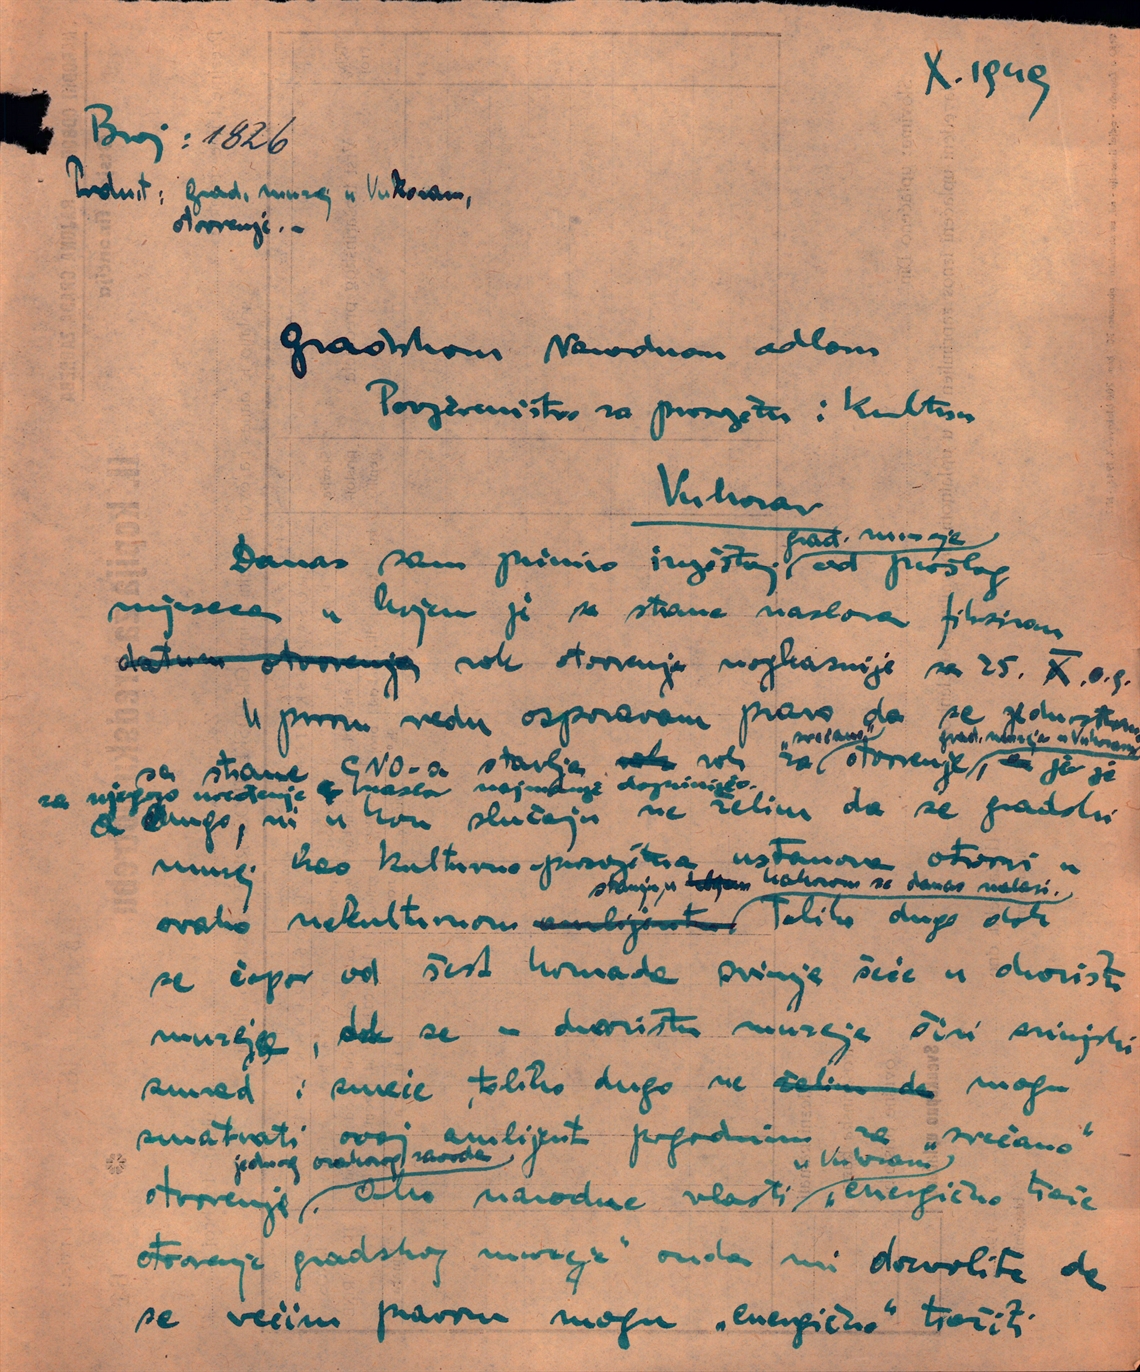 X. 1949
Broj : 1826
Predmet : Grad. muzej u Vukovaru,
otvorenje. -
Gradskom Narodnom odboru
Povjereništvo za prosvjetu i kulturu
Vukovar
grad. muzeja
Danas sam primio izvještaj od prošlog
mjeseca u kojem je sa strane naslova fiksiran
datum otvorenja rok otvorenja najkasnije sa 25. X. o.g.
U prvom redu osporavam pravo da se jednostavno
"svečano" grad. muzeja u Vukovaru
sa strane GNO-a stavlja rok za otvorenje, jer je
za njegovo uređenje najmanje doprinijeo.
a drugo, ni u kom slučaju ne želim da se gradski
muzej kao kulturno-prosvjetna ustanova otvori u
stanju, u kakvom se danas nalazi.
ovako nekulturnom ambijentu Toliko dugo dok
se čopor od šest komada svinja šeće u dvorištu
muzeja, dok se u dvorištu muzeja širi svinjski
smrad i smeće, toliko dugo ne želim da mogu
smatrati ovaj ambijent pogodnim za "svečano"
jednog ovakvog zavoda u Vukovaru
otvorenje. Ako narodne vlasti "energično traže
otvorenje gradskog muzeja" onda mi dozvolite da
se većim pravom mogu "energično" tražiti